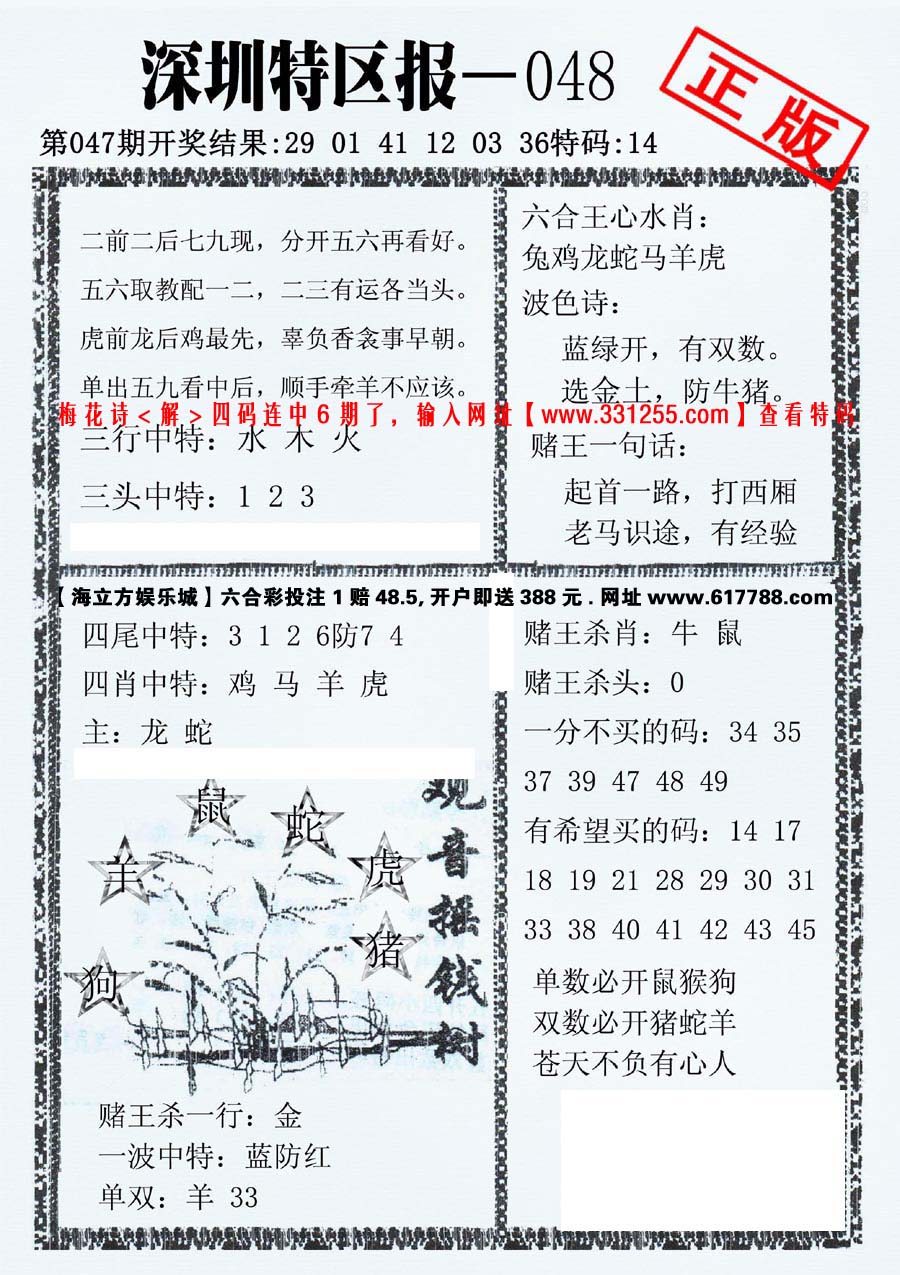 深圳特区报—048
正版
第047期开奖结果:29 01 41 12 03 36特码:14
二前二后七九现，分开五六再看好。
五六取教配一二，二三有运各当头。
虎前龙后鸡最先，辜负香衾事早朝。
单出五九看中后，顺手牵羊不应该。
梅花诗<解>四码连中6期了，输入网址【www.331255.com】查看特码
三行中特：水 木 火
三头中特：1 2 3
六合王心水肖：
兔鸡龙蛇马羊虎
波色诗：
蓝绿开，有双数。
选金土，防牛猪。
赌王一句话：
起首一路，打西厢
老马识途，有经验
【海立方娱乐城】六合彩投注1赔48.5,开户即送388元.网址www.617788.com
四尾中特：3 1 2 6防7 4
四肖中特：鸡 马 羊 虎
主：龙 蛇
鼠
蛇
羊
虎
猪
狗
观音摇钱树
赌王杀一行：金
一波中特：蓝防红
单双：羊 33
赌王杀肖：牛 鼠
赌王杀头：0
一分不买的码：34 35
37 39 47 48 49
有希望买的码：14 17
18 19 21 28 29 30 31
33 38 40 41 42 43 45
单数必开鼠猴狗
双数必开猪蛇羊
苍天不负有心人